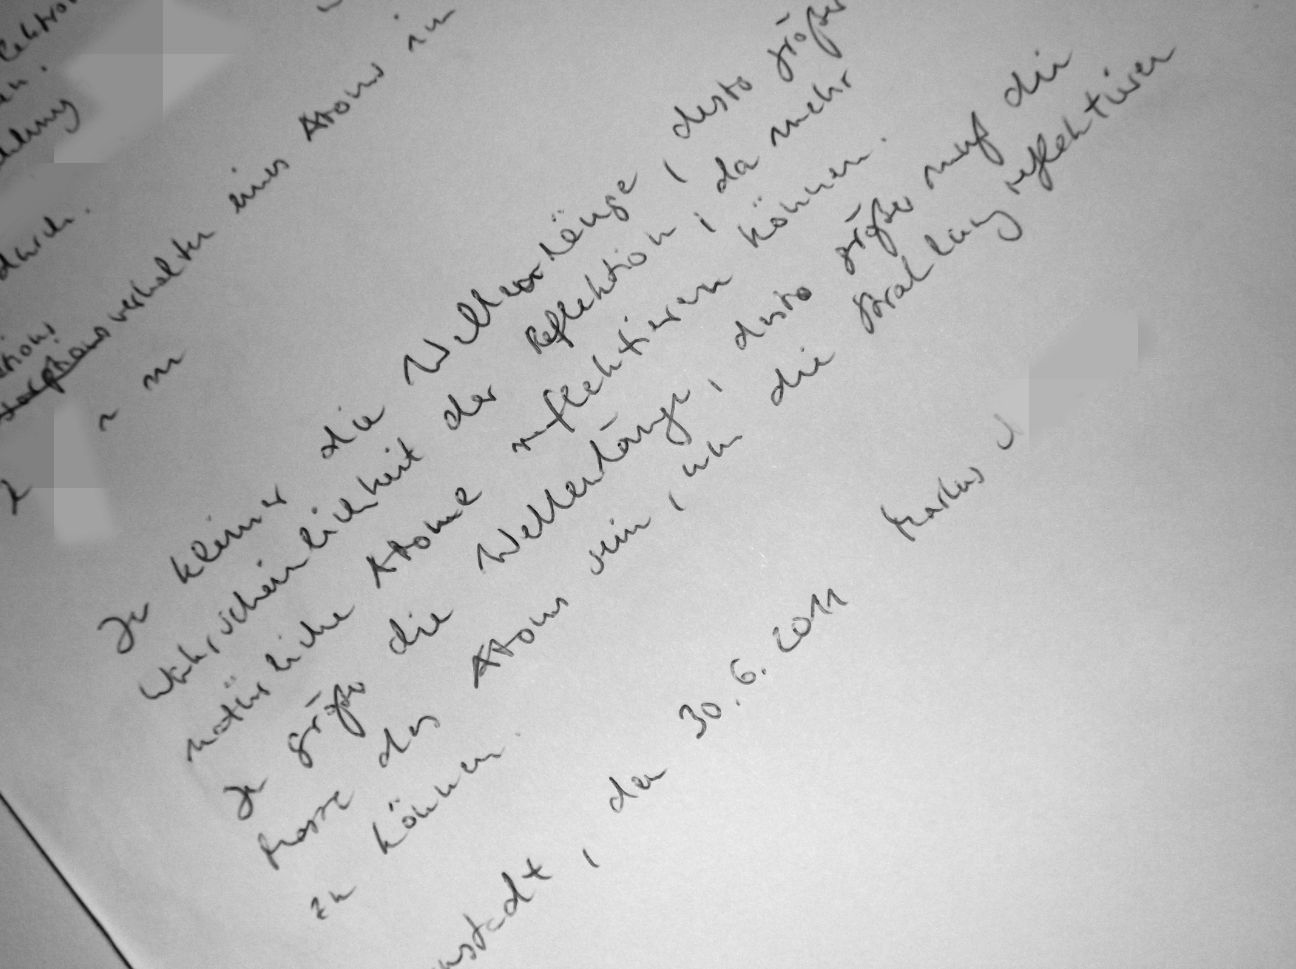 lektron
en.
durch.
verhalten eines Atoms in
~ m
Je kleiner die Wellenlänge, desto größer
Wahrscheinlichkeit der Reflektion, da mehr
natürliche Atome reflektieren können.
Je größer die Wellenlänge, desto größer muß die
Masse des Atoms sein, um die Strahlung reflektieren
zu können.
nstadt, den 30.6.2011 Markus